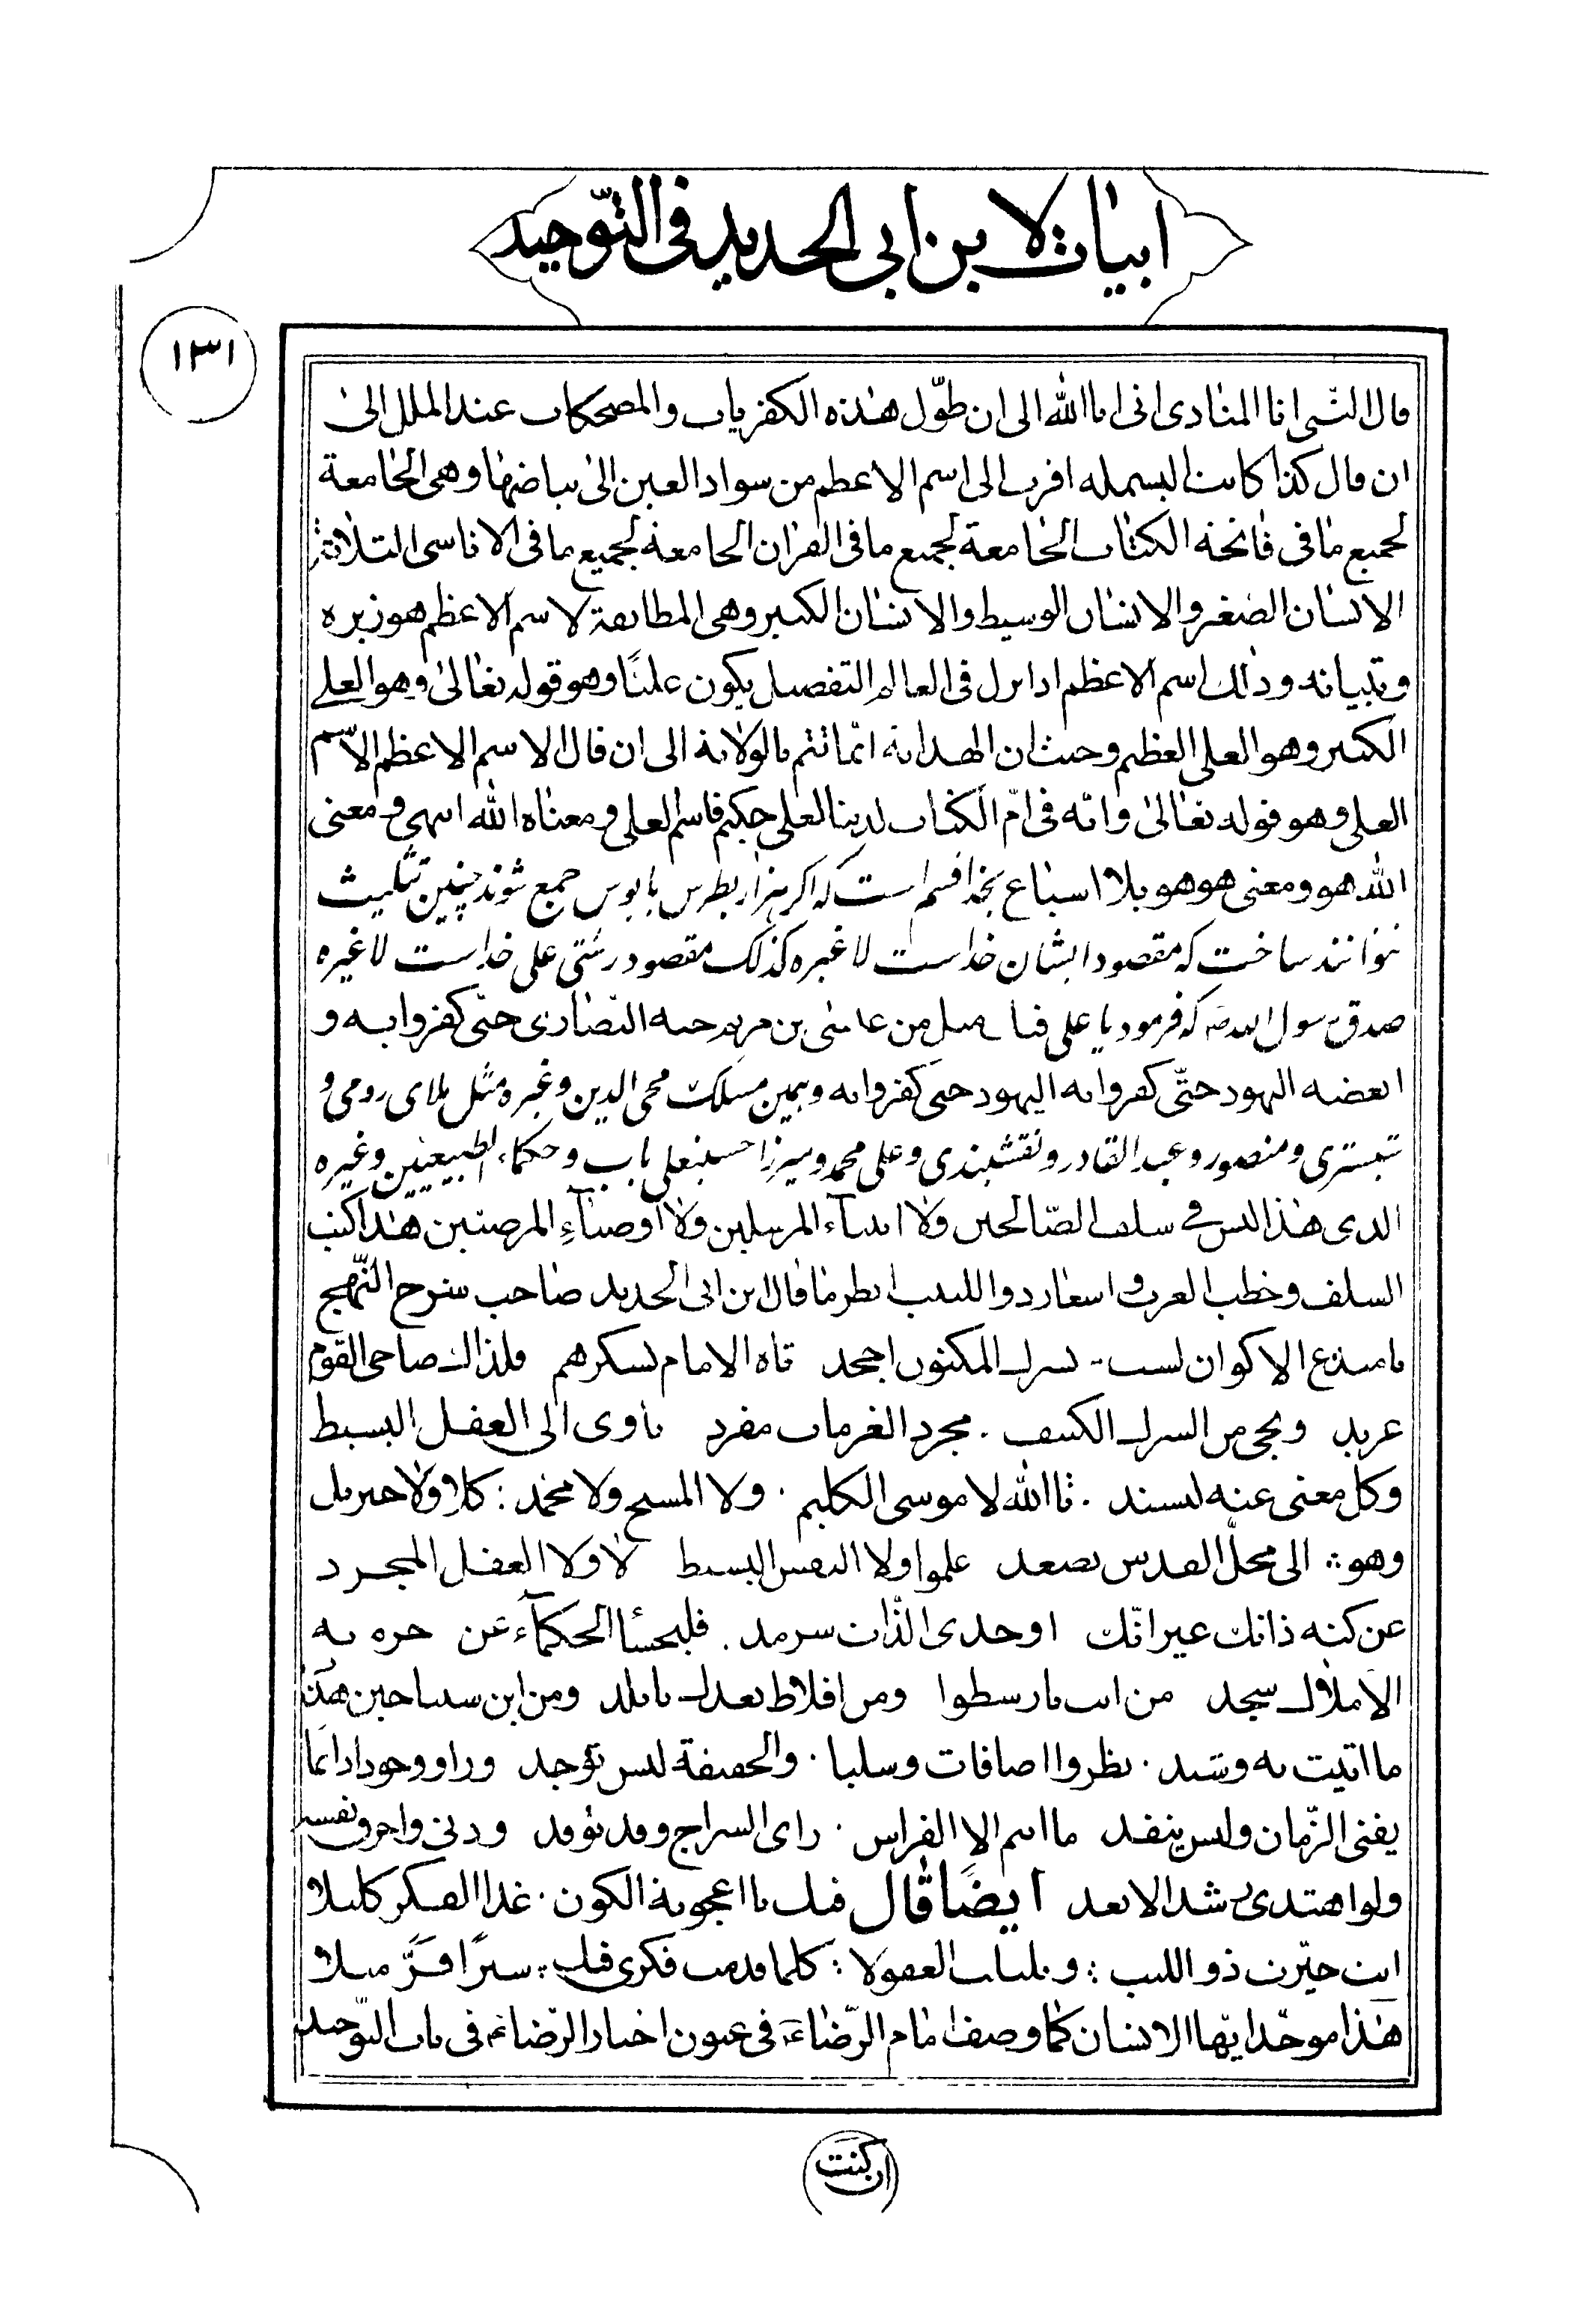 ابيات لابن ابى الحديد فى التّوحيد
١٣١
قال النّبى انا المنادى انى انا الله الى ان طوّل هذه الكفريات والمضحكات عند الملل الى
ان قال كذا كانت البسمله اقرب الى اسم الاعظم من سواد العين الى بياضها وهى الجامعة
لجميع ما فى فاتحة الكتاب الجامعة لجميع ما فى القران الجامعة لجميع ما فى الاناسى الثلاثة
الانسان الصغير والانسان الوسيط والانسان الكبير وهى المطابقة لاسم الاعظم هو زبره
وتبيانه وذلك اسم الاعظم اذا نزل فى العالم التفصيل يكون عليًّا وهو قوله تعالى وهو العلى
الكبير وهو العلى العظيم وحيث ان الهداية انّما تتم بالولاية الى ان قال الاسم الاعظم الاسم
العلى وهو قوله تعالى وانّه فى امّ الكتاب لدينا لعلى حكيم فاسم العلى ومعناه الله انتهى ومعنى
الله هو ومعنى هو هو بلا اشباع بخدا قسم است كه اكر هزار بطرس پاپوس جمع شوند چنين تثليث
نتوانند ساخت كه مقصود ايشان خداست لا غيره كذلك مقصود رشتى على خداست لا غيره
صدق رسول الله ص كه فرمود يا على فيك مثل من عيسى بن مريم حبه النصارى حتى كفروا به و
ابغضه اليهود حتّى كفروا به اليهود حتى كفروا به وهمين مسلك محى الدين وغيره مثل ملاى رومى و
شبسترى ومنصور وعبد القادر ونقشبندى وعلى محمد وميرزا حسينعلى باب وحكماء الطبيعيين وغيره
الذى هذا ليس فى سلف الصّالحين ولا انبيآء المرسلين ولا اوصيآءِ المرضيين هذا كتب
السلف وخطب العرب واشعار ذو اللبيب انظر ما قال ابن ابى الحديد صاحب شرح النّهج
يا مبدع الاكوان لست لسرك المكنون اجحد تاه الانام بسكرهم فلذاك صاحى القوم
عربد ونجى من الشرك الكثيف . مجرد الغرمات مفرد ياوى الى العقل البسيط
وكل معنى عنه يسند . تا الله لا موسى الكليم . ولا المسيح ولا محمد : كلا ولا جبريل
وهو : الى محلّ القدس يصعد علموا ولا النفس البسيط لا ولا العقل المجرد
عن كنه ذاتك غير انّك اوحدى الذّات سرمد . فليخسأ الحكمآء عن حره به
الاملاك سجد من انت يا رسطوا ومن افلاط بعدك يا بلد ومن ابن سينا حين هذّ
ما اتيت به وشيد . نظروا اضافات وسلبا . والحقيقة ليس توجد وراو وجودا دائما
يفنى الزّمان وليس ينفد ما انتم الا الفراش . راى السراج وقد توقد ودنى واحرق نفسه
ولو اهتدى رشدا لابعد ايضًا قال فيك يا اعجوبة الكون . غدا الفكر كليلا
انت حيّرت ذو اللب : وبلبلت العقولا : كلما قدمت فكرى فيك : شبرًا فرَّ ميلا
هذا موحّد ايّها الانسان كما وصف امام الرّضاء فى عيون اخبار الرّضا فى باب التّوحيد
ان كنت